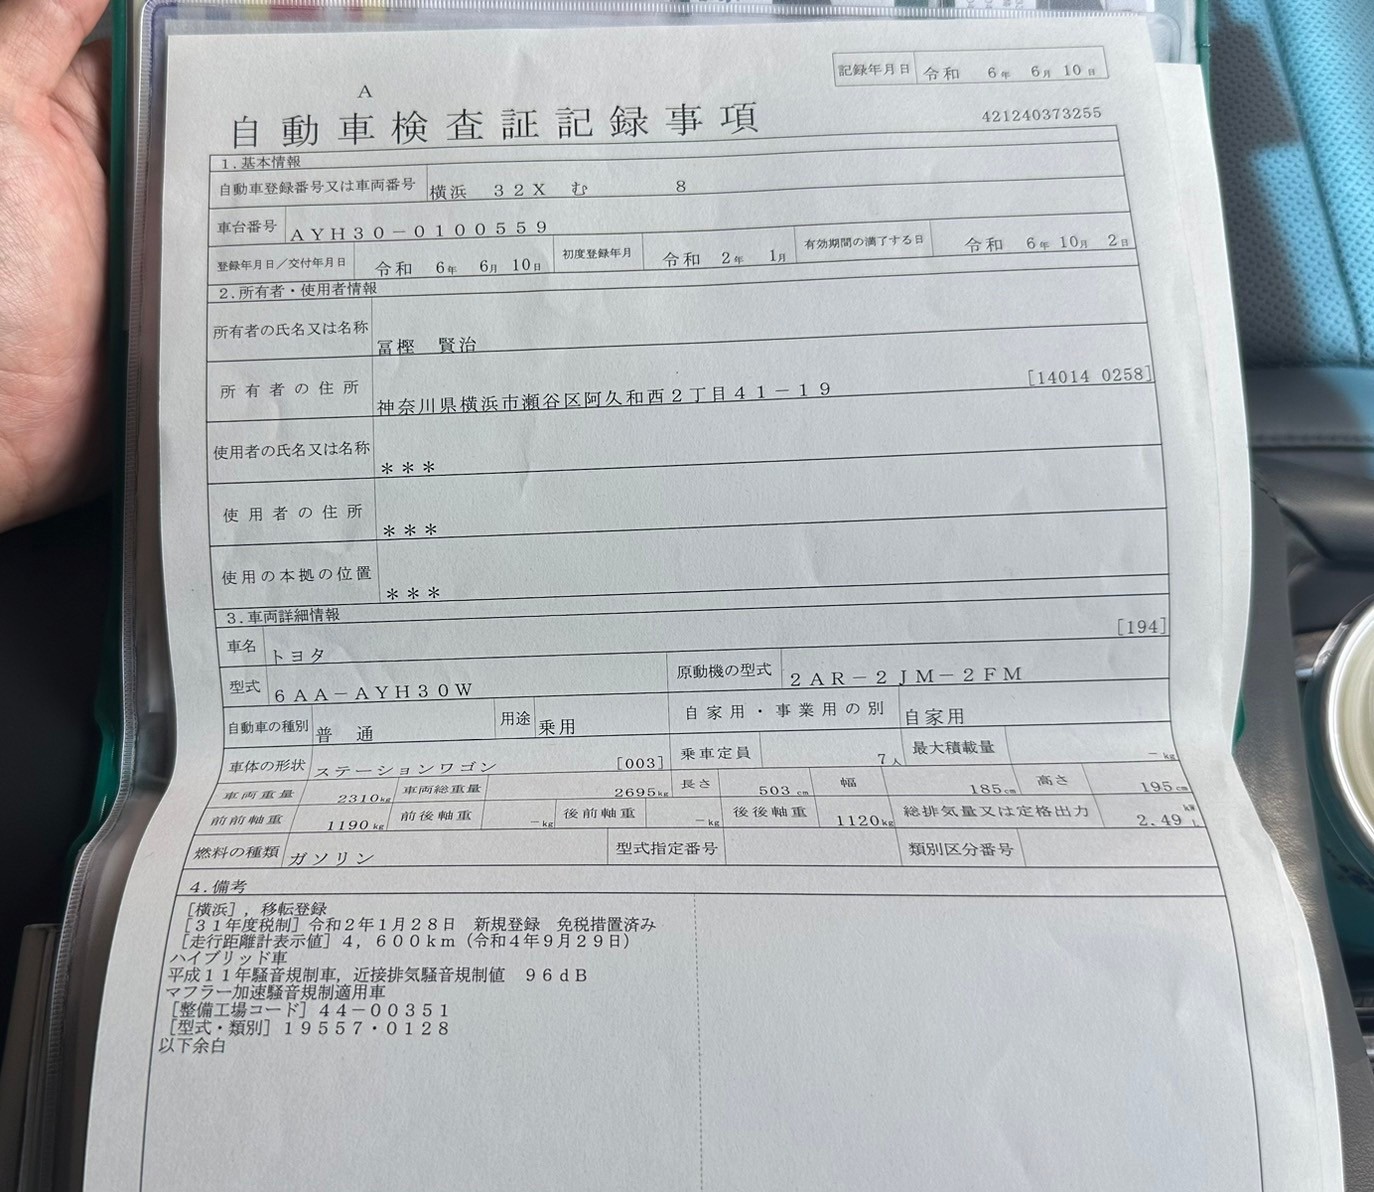 記録年月日 令和 6年 6月 10日
A
自動車検査証記録事項
421240373255
1.基本情報
自動車登録番号又は車両番号 横浜 32X む 8
車台番号 AYH30-0100559
登録年月日/交付年月日 令和 6年 6月 10日 初度登録年月 令和 2年 1月 有効期間の満了する日 令和 6年 10月 2日
2.所有者・使用者情報
所有者の氏名又は名称 冨樫 賢治
所有者の住所 神奈川県横浜市瀬谷区阿久和西2丁目41-19 [14014 0258]
使用者の氏名又は名称 ***
使用者の住所 ***
使用の本拠の位置 ***
3.車両詳細情報
車名 トヨタ [194]
型式 6AA-AYH30W 原動機の型式 2AR-2JM-2FM
自動車の種別 普通 用途 乗用 自家用・事業用の別 自家用
車体の形状 ステーションワゴン [003] 乗車定員 7人 最大積載量 -kg
車両重量 2310kg 車両総重量 2695kg 長さ 503cm 幅 185cm 高さ 195cm
前前軸重 1190kg 前後軸重 -kg 後前軸重 -kg 後後軸重 1120kg 総排気量又は定格出力 2.49 kW L
燃料の種類 ガソリン 型式指定番号 類別区分番号
4.備考
[横浜],移転登録
[31年度税制]令和2年1月28日 新規登録 免税措置済み
[走行距離計表示値]4,600km(令和4年9月29日)
ハイブリッド車
平成11年騒音規制車,近接排気騒音規制値 96dB
マフラー加速騒音規制適用車
[整備工場コード]44-00351
[型式・類別]19557・0128
以下余白